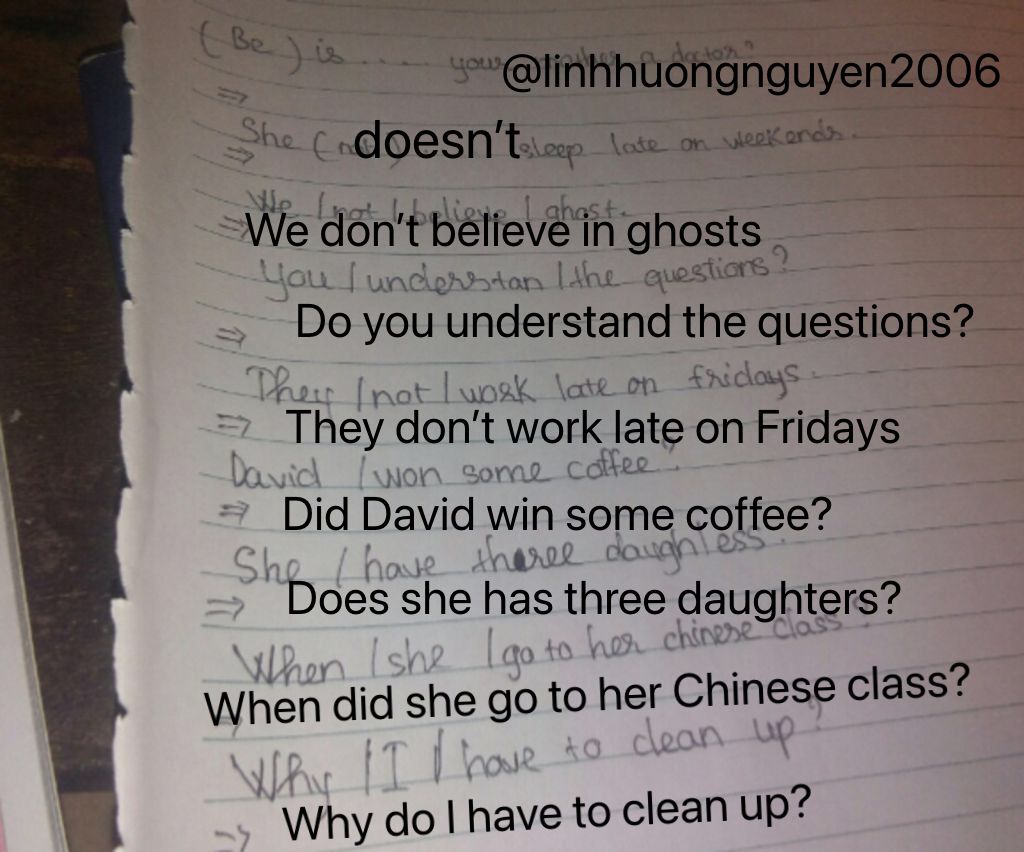 (Be) is .... your a doctor?
@linhhuongnguyen2006
⇒
She (not) doesn't sleep late on weekends.
⇒
We / not / believe / ghost.
⇒ We don't believe in ghosts
You / understan / the questions?
⇒ Do you understand the questions?
They / not / work late on fridays.
⇒ They don't work late on Fridays
David / won some coffee?
⇒ Did David win some coffee?
She / have threee
⇒ Does she has three daughters?
When / she / go to her chinese class?
⇒ When did she go to her Chinese class?
Why / I / have to clean up?
⇒ Why do I have to clean up?